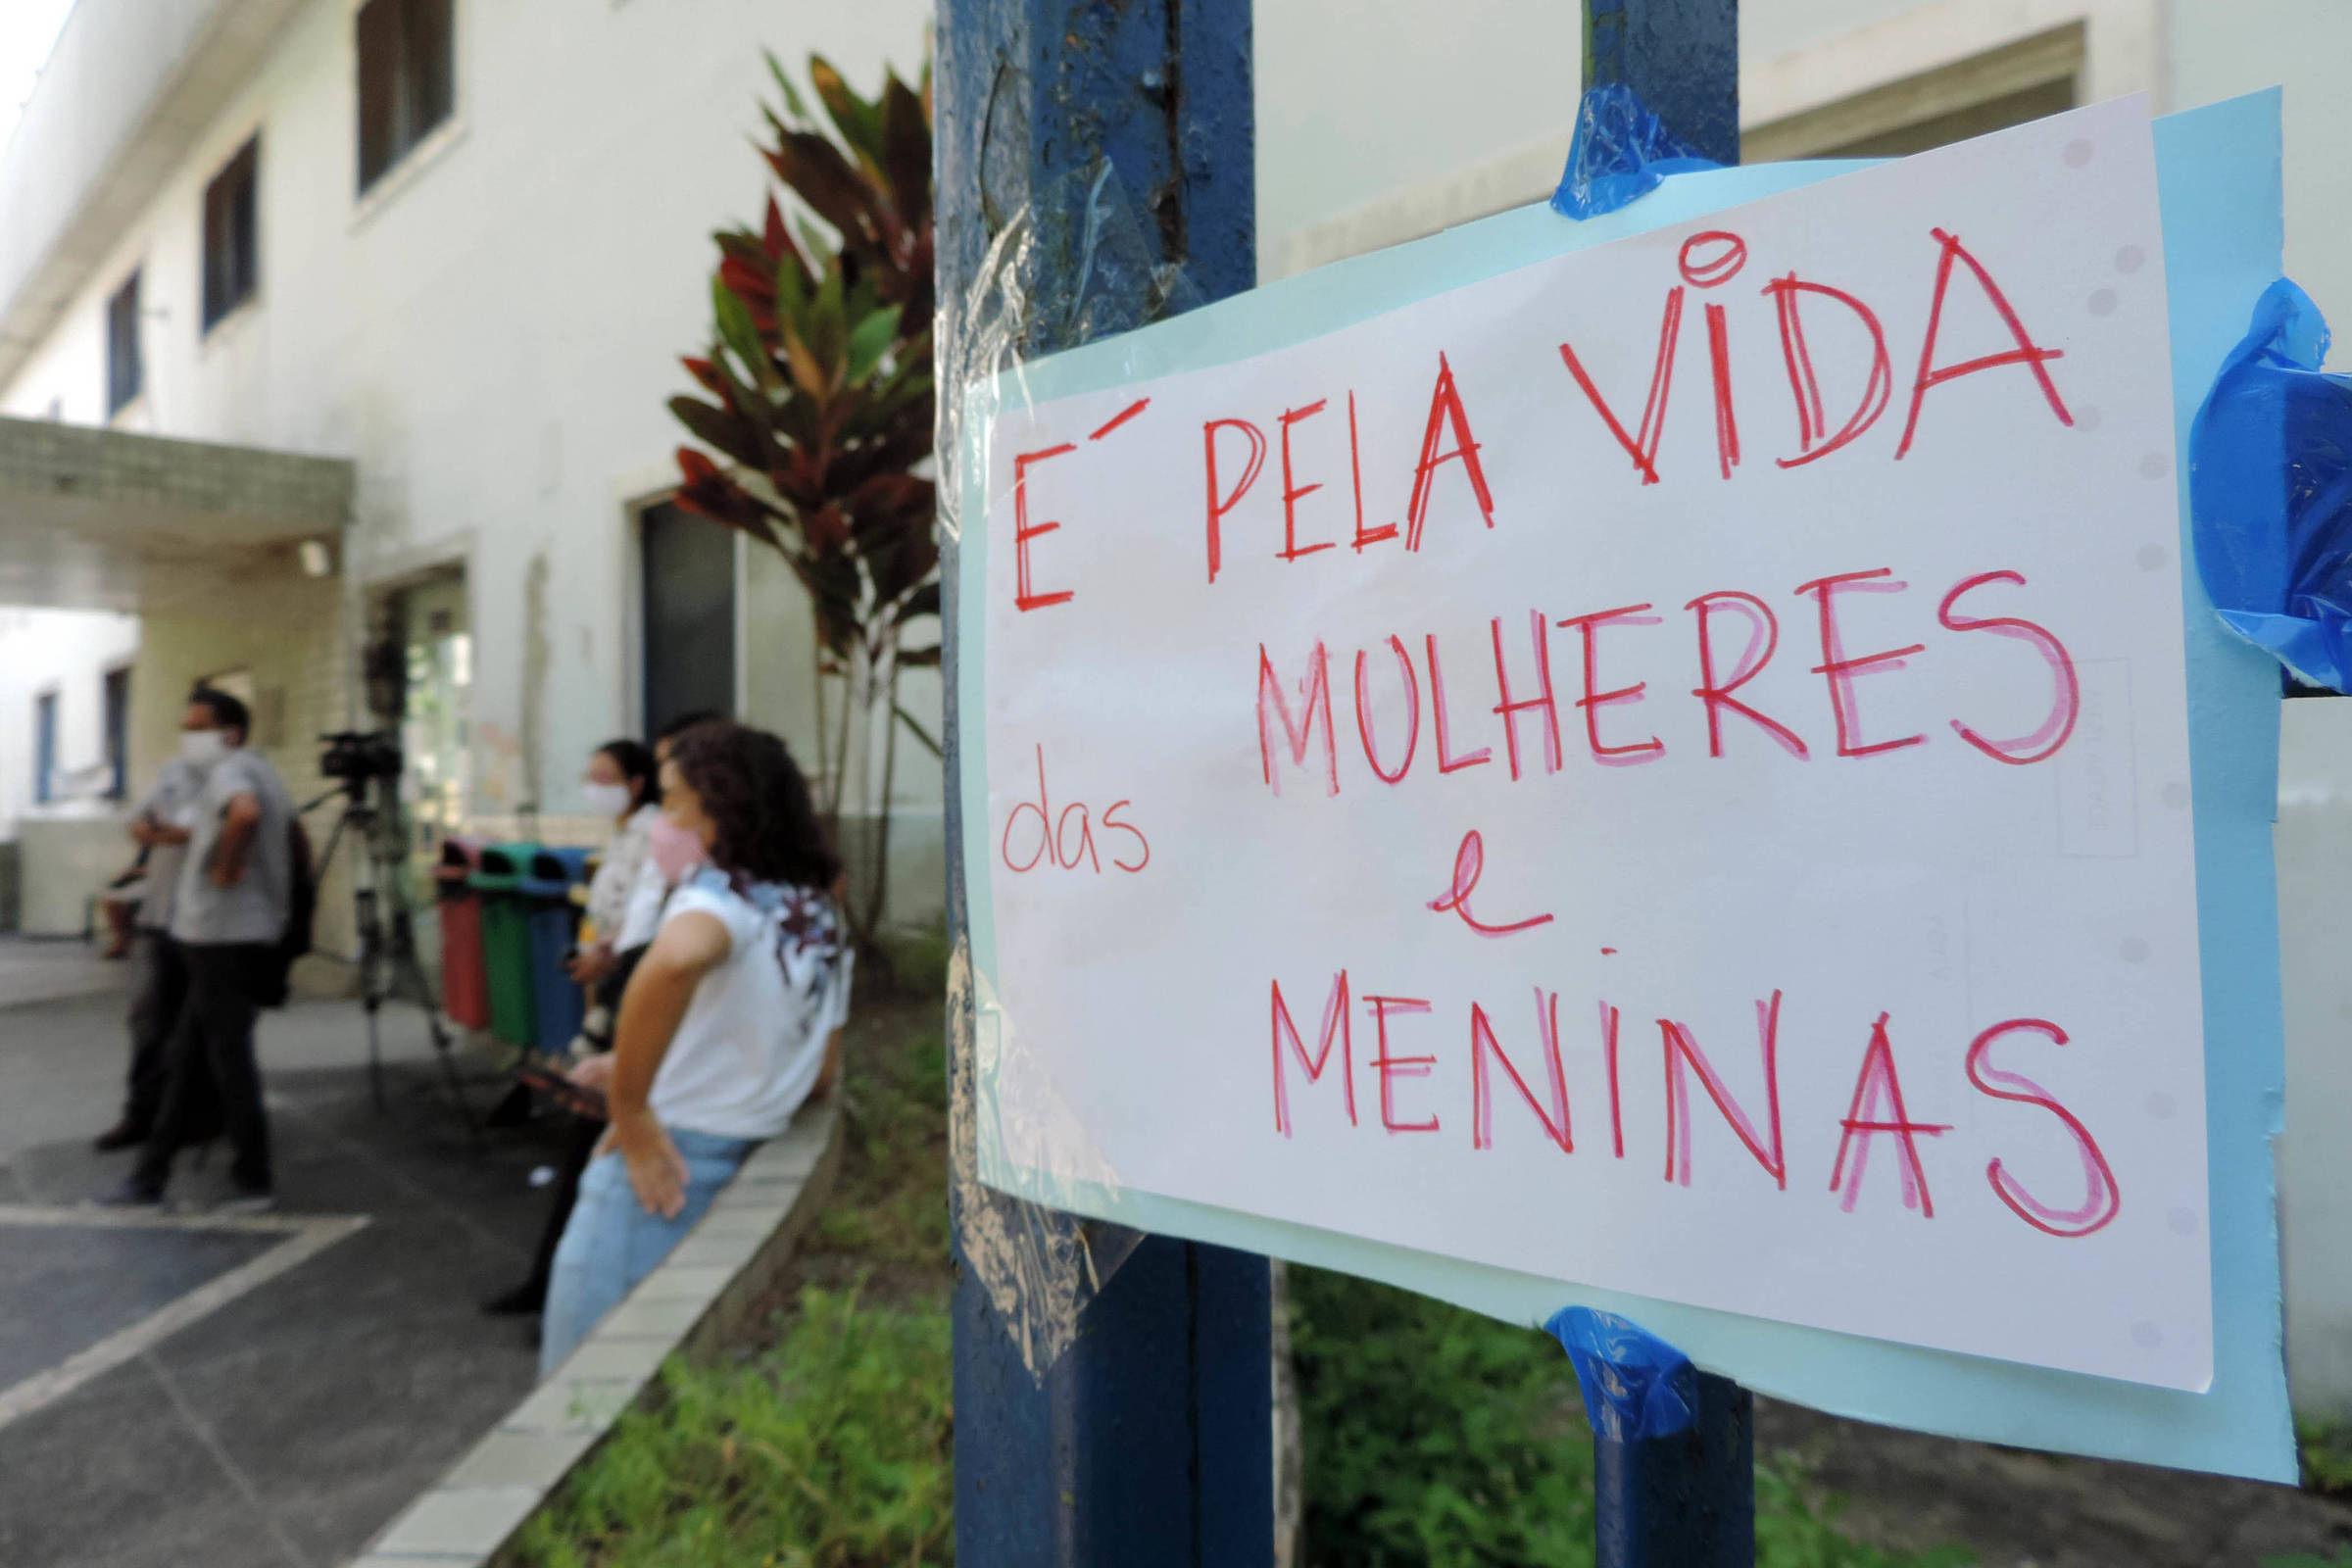 É PELA ViDA
das MULHERES
e
MENiNAS